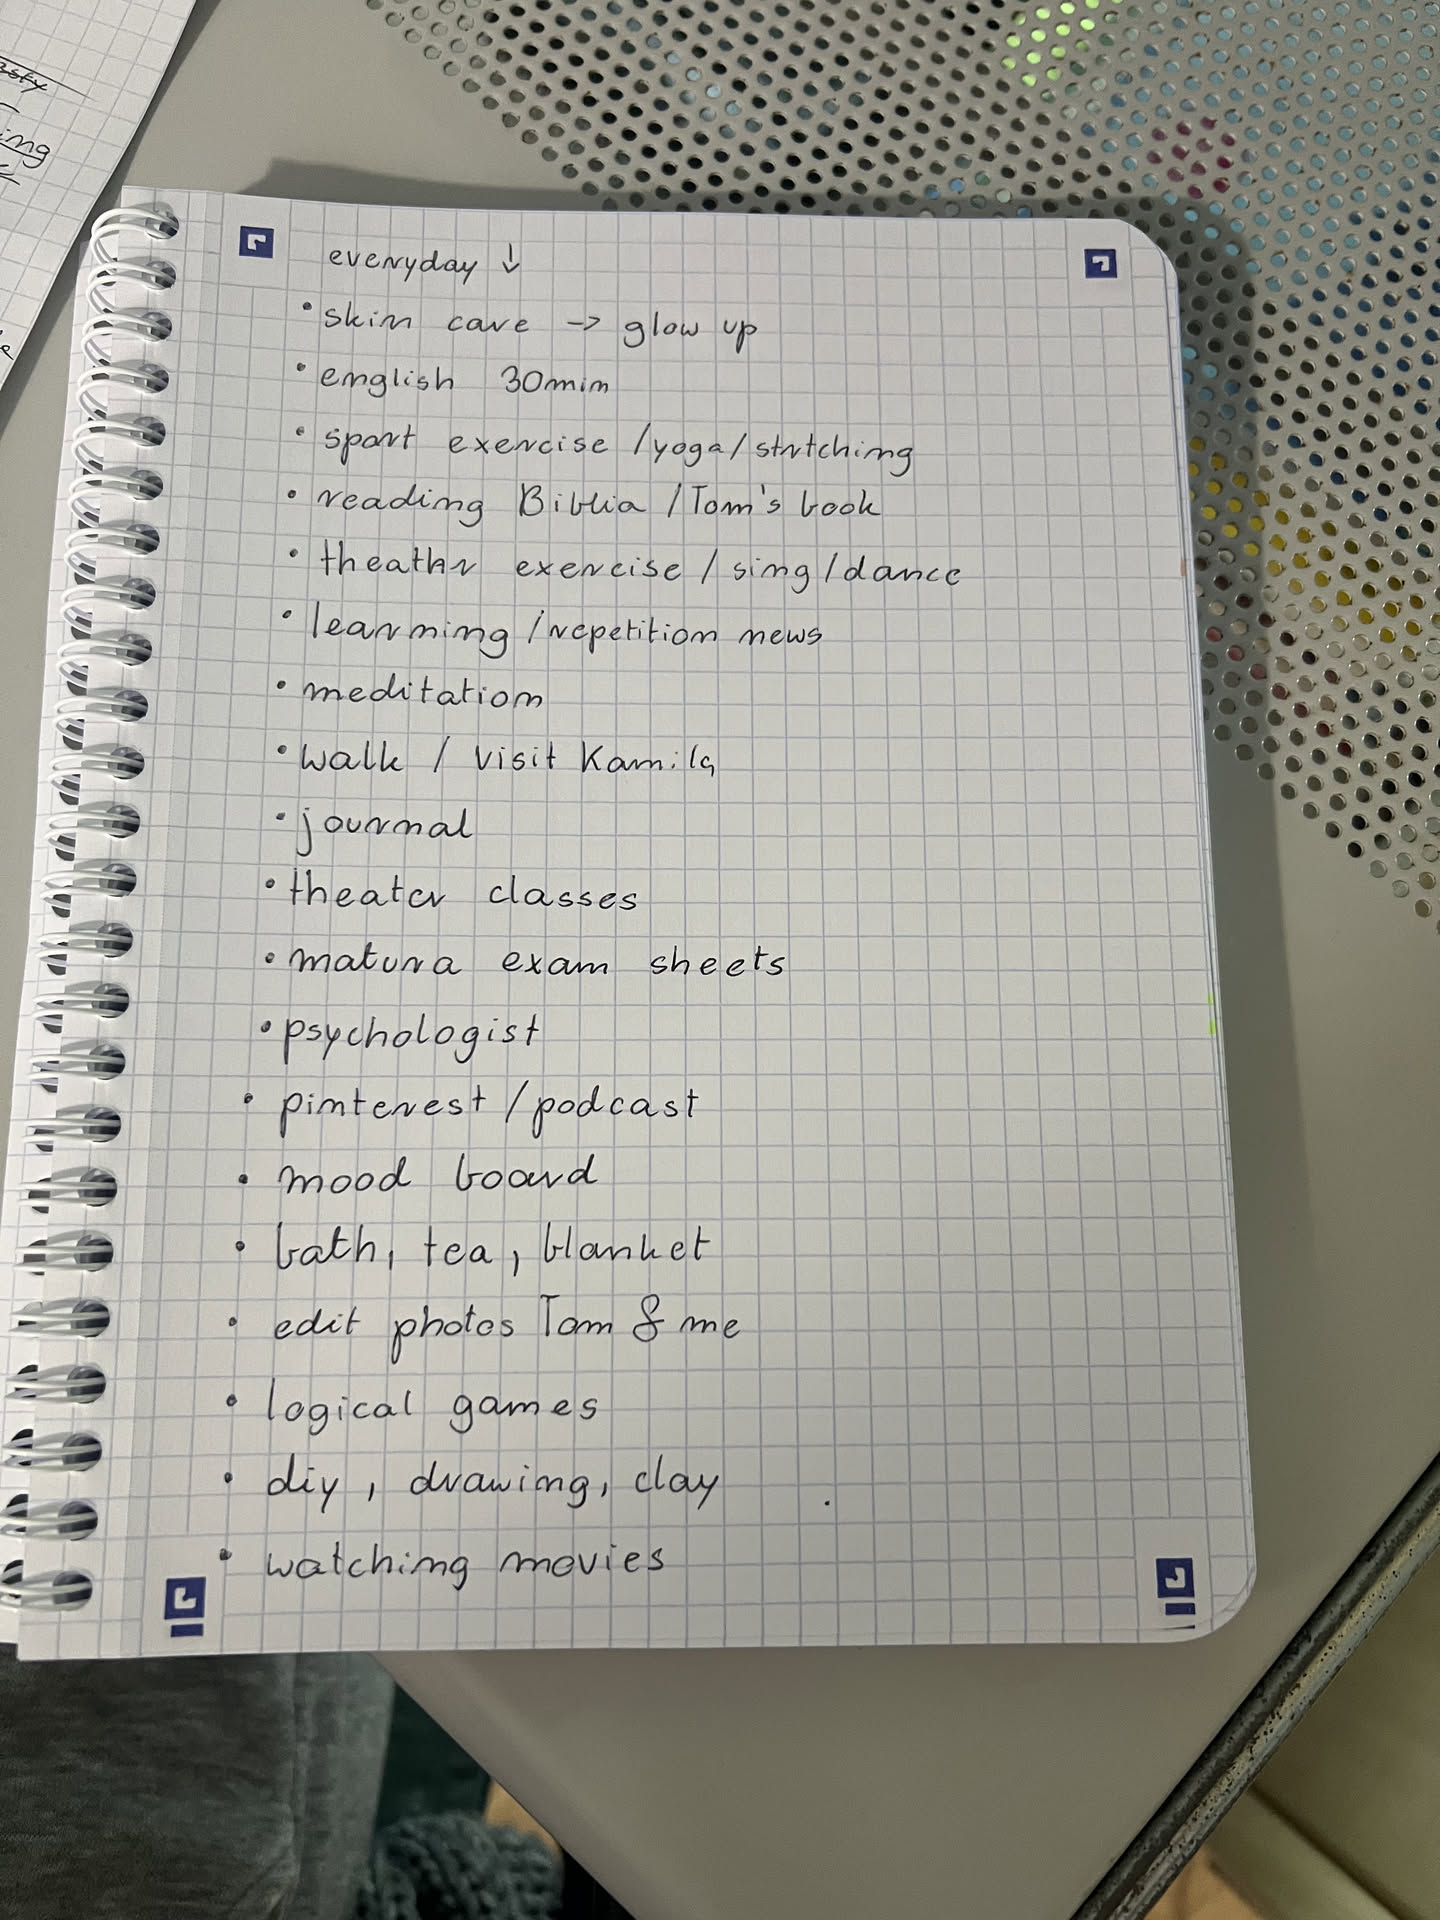 asty
ing
everyday ↓
• skin care -> glow up
• english 30min
• sport exercise /yoga/strtching
• reading Biblia /Tom's book
• theathr exercise / sing /dance
• learning /repetition news
• meditation
• walk / visit Kamila
• journal
• theater classes
• matura exam sheets
• psychologist
• pinterest /podcast
• mood board
• bath, tea, blanket
• edit photos Tom & me
• logical games
• diy, drawing, clay
• watching movies